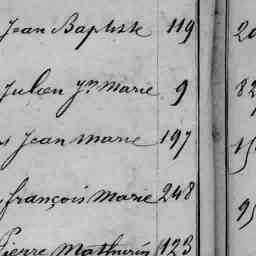 Jean Baptiste 119
Julien Jn Marie 9
Jean Marie 197
françois Marie 248
Pierre Mathurin 123